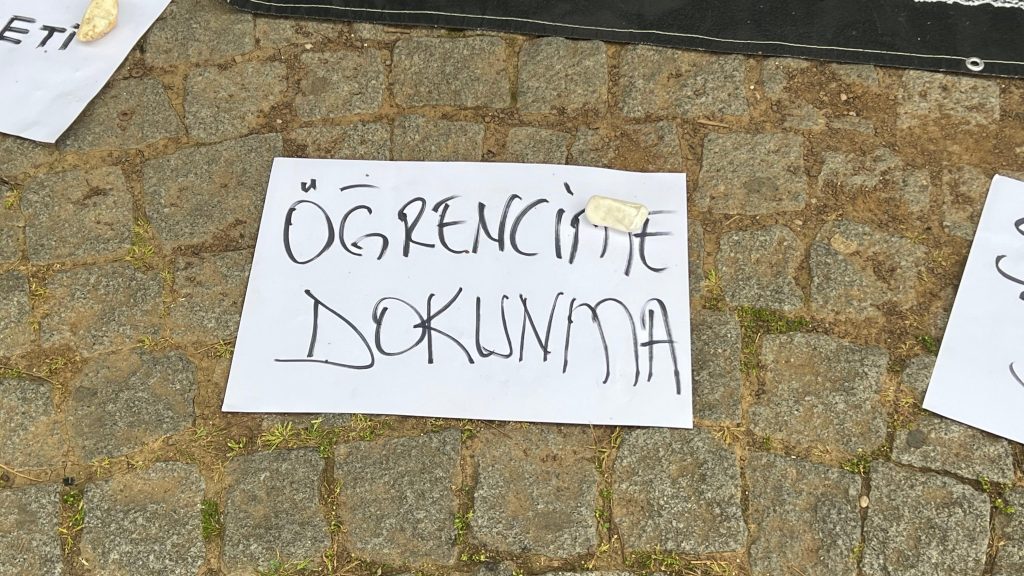 ETİ
ÖĞRENCİME
DOKUNMA